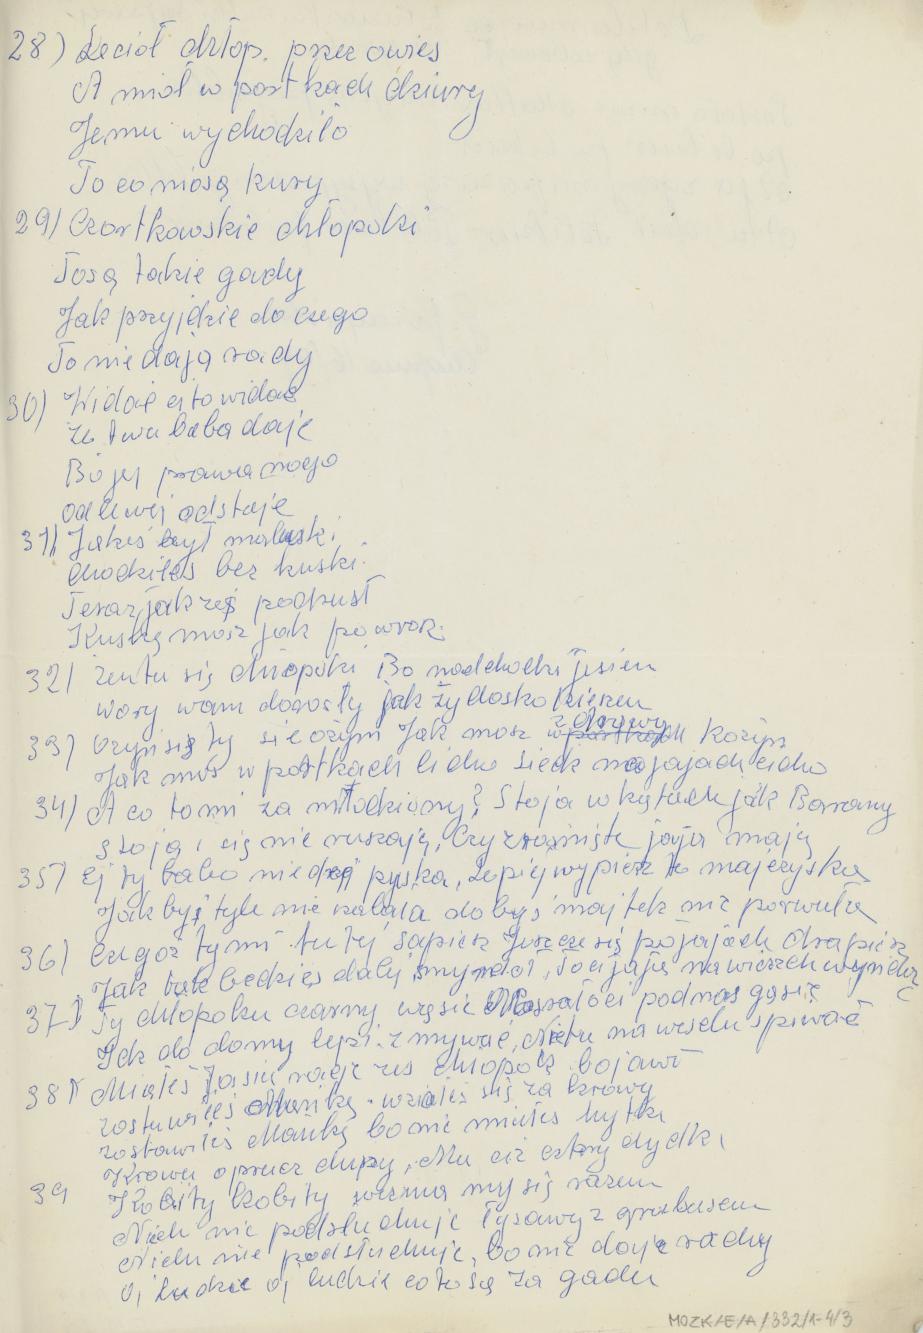 28) Leciał chłop. przez owies
A miał w portkach dziury
Jemu wychodziło
To co niosą kury
29) Czortkowskie chłopoki
To są takie gady
Jak przyjdzie do czego
To nie dają rady
30) Widać ci to widać
że twa baba daje
Bo jej prawa noga
od lewej odstaje
31) Jakeś był maluski
chodziłeś bez kuski.
Teraz jak żeś podrusł
Kuskę mosz jak powrok.
32) żentu się chłopoki Bo nadchodzi jesien
wory wam dorosły jak żydosko kiesen
33) ożyń się ty sie ożyn Jak mosz zdrowy korzyn
Jak mos w portkach licho siedź na jajach cicho
34) A co to mi za młodziony? Stoja w kątach jak Barany
stoją i się nie ruszają, Czy jaja mają
35) ej ty babo nie drej pyska, Lepiej wypierz te majczyska
Jak byś tyle nie to byś majtek nie porwała
36) czegoż ty mi tutej sapiesz Jeszcze się po jajach drapiesz
Jak tak bedzies dalej to ci jaja na wierzch
37) Ty chłopoku czarny wąsie podnos gąsie
Idź do domy lepi zmywać, Nie tu na weselu śpiwać
38) Miałeś Jasiu racje żeś chłopok bojowi
zostawiłeś Mańkę wziołeś się za krowy
zostawiłeś Mańkę bo nie miałeś łytki
Krowa oprucz dupy, Ma cię cztery dydki
39 Kobity kobity my się razem
Niech nie podsłuchuje Łysawy z grubasem
Niech nie podsłuchuje, bo nie daje rady
Oj ludzie oj ludzie co to są za gady
MOZK/E/A/332/1-4/3